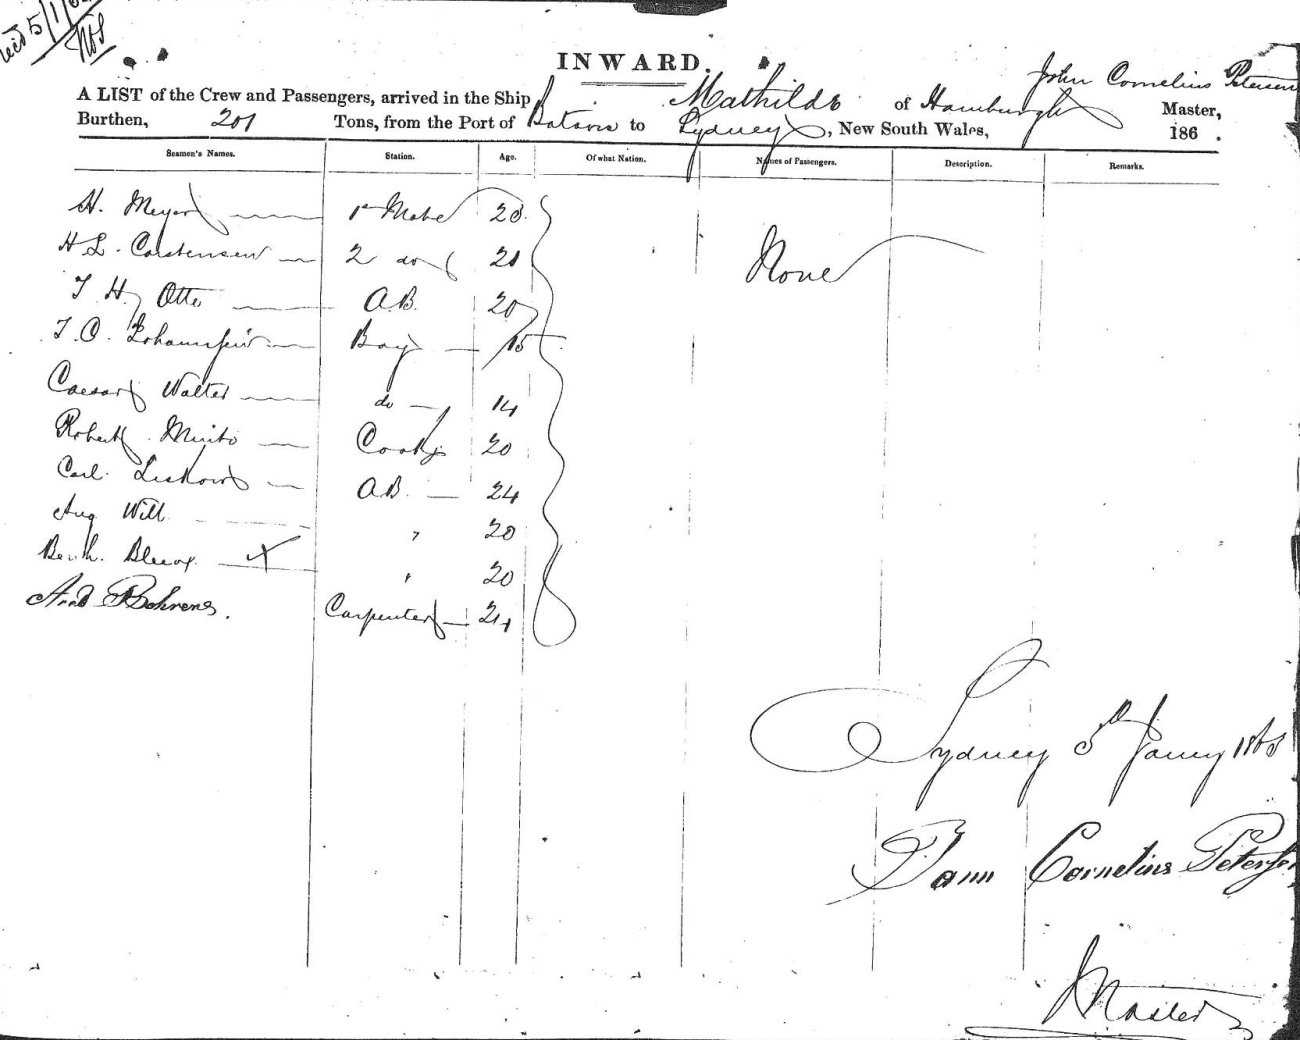 INWARD.
John Cornelius Petersen
A LIST of the Crew and Passengers, arrived in the Ship Mathilde of Hamburgh Master,
Burthen, 201 Tons, from the Port of Batavia to Sydney, New South Wales, 186 .
Seamen's Names. Station. Age. Of what Nation. Names of Passengers. Description. Remarks.
H. Meyer 1st Mate 28 None
H L. Carstensen 2 do 21
J H Otto A.B. 20
J. O. Boy 15
Caesar Walter do 14
Robert Cook 20
Carl A.B. 24
Aug Will " 20
" 20
Behrens. Carpenter 24
Sydney 5th Jany 186
Cornelius Petersen
Master